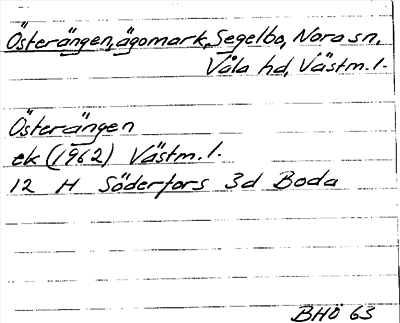 Österängen, ägomark, Segelbo, Nora sn,
Våla hd, Västm. l.
Österängen
ek (1962) Västm. l.
12 H Söderfors 3d Boda
BHÖ 63